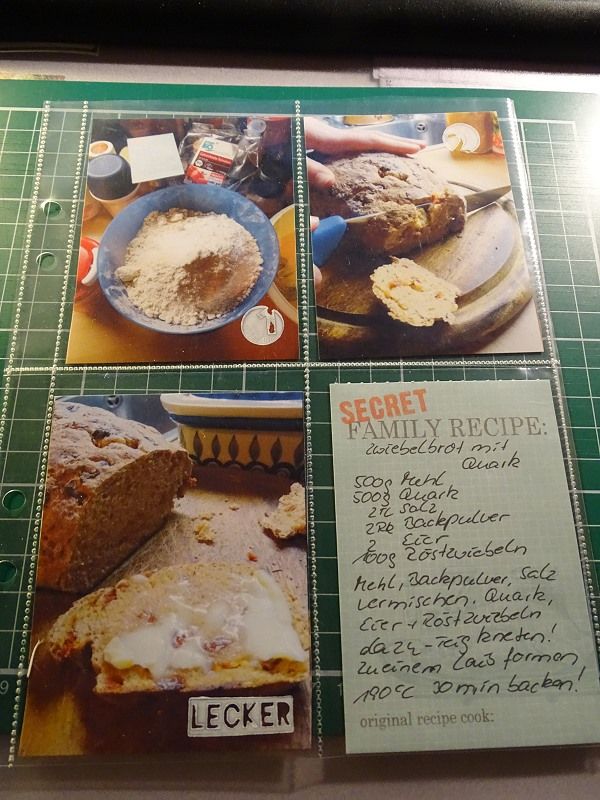 LECKER
SECRET
FAMILY RECIPE:
Zwiebelbrot mit
Quark
500g Mehl
500g Quark
2TL Salz
2Pk Backpulver
2 Eier
100g Röstzwiebeln
Mehl, Backpulver, Salz
vermischen. Quark,
Eier + Röstzwiebeln
dazu - Teig kneten!
Zu einem Laib formen
190°C 30 min backen!
original recipe cook: